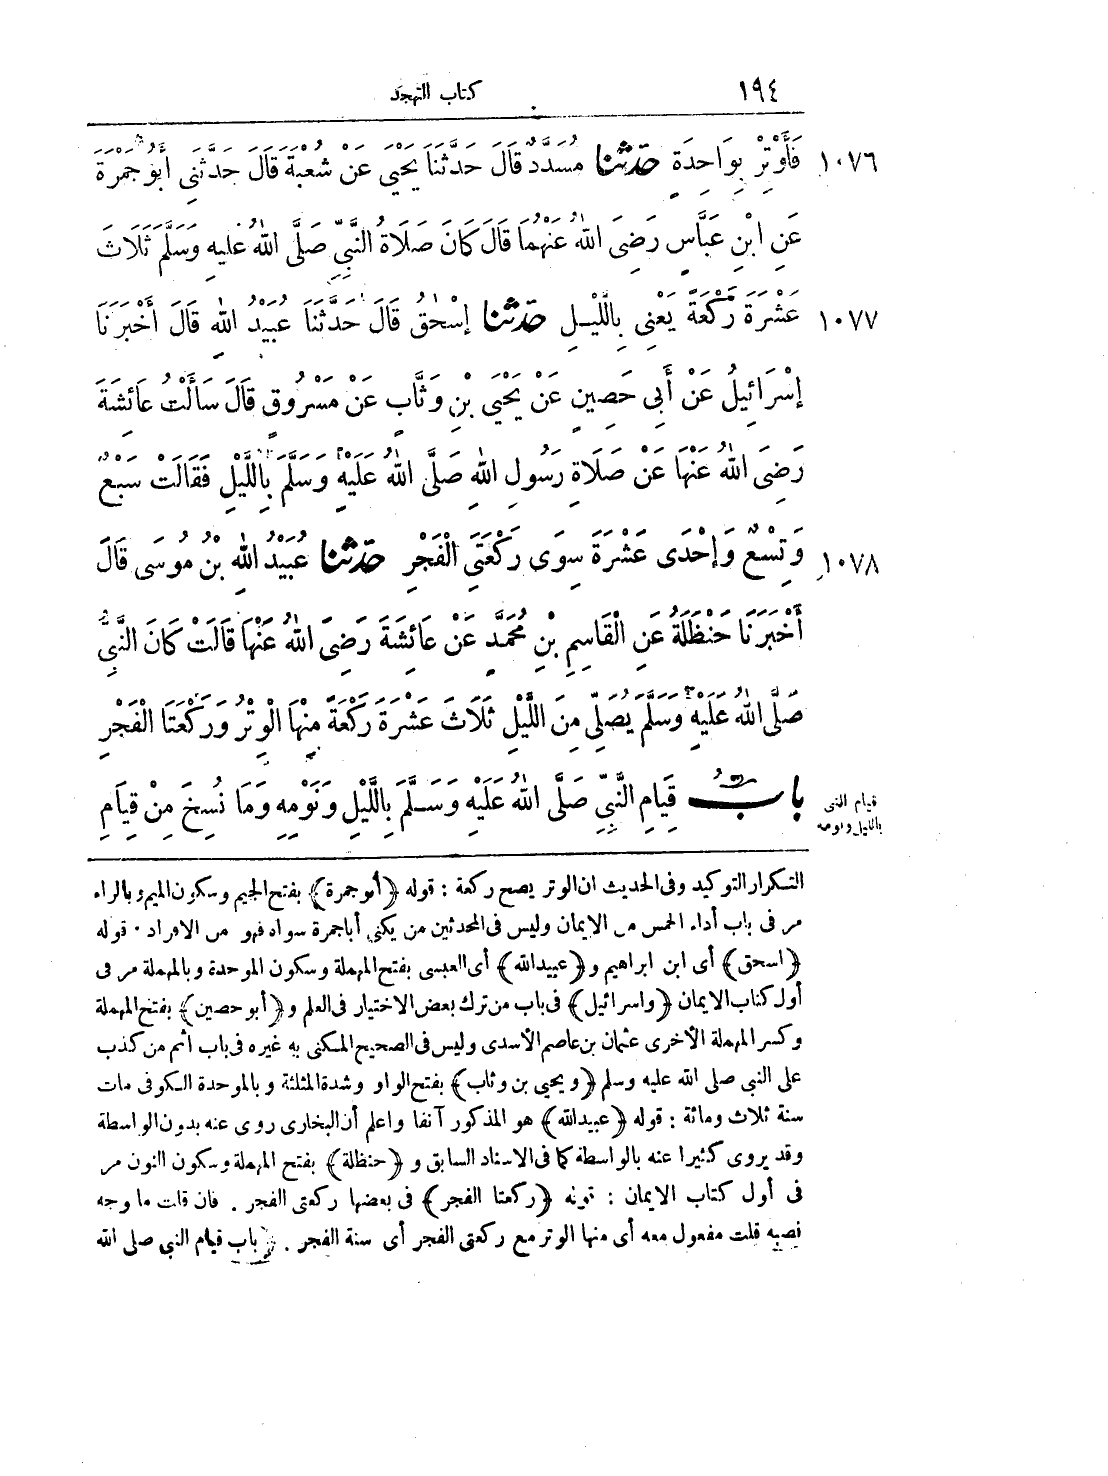 ١٩٤ كتاب التهجد
١٠٧٦ فَأَوْتِرْ بِوَاحِدَةٍ حَدَّثَنَا مُسَدَّدٌ قَالَ حَدَّثَنَا يَحْيَى عَنْ شُعْبَةَ قَالَ حَدَّثَنِى أَبُو جَمْرَةَ
عَنِ ابْنِ عَبَّاسٍ رَضِىَ اللّٰهُ عَنْهُمَا قَالَ كَانَ صَلَاةُ النَّبِىِّ صَلَّى اللّٰهُ عَلَيْهِ وَسَلَّمَ ثَلَاثَ
١٠٧٧ عَشْرَةَ رَكْعَةً يَعْنِى بِاللَّيْلِ حَدَّثَنَا إِسْحٰقُ قَالَ حَدَّثَنَا عُبَيْدُ اللّٰهِ قَالَ أَخْبَرَنَا
إِسْرَائِيلُ عَنْ أَبِى حَصِينٍ عَنْ يَحْيَى بْنِ وَثَّابٍ عَنْ مَسْرُوقٍ قَالَ سَأَلْتُ عَائِشَةَ
رَضِىَ اللّٰهُ عَنْهَا عَنْ صَلَاةِ رَسُولِ اللّٰهِ صَلَّى اللّٰهُ عَلَيْهِ وَسَلَّمَ بِاللَّيْلِ فَقَالَتْ سَبْعٌ
١٠٧٨ وَتِسْعٌ وَإِحْدَى عَشْرَةَ سِوَى رَكْعَتَىِ الْفَجْرِ حَدَّثَنَا عُبَيْدُ اللّٰهِ بْنُ مُوسَى قَالَ
أَخْبَرَنَا حَنْظَلَةُ عَنِ الْقَاسِمِ بْنِ مُحَمَّدٍ عَنْ عَائِشَةَ رَضِىَ اللّٰهُ عَنْهَا قَالَتْ كَانَ النَّبِىُّ
صَلَّى اللّٰهُ عَلَيْهِ وَسَلَّمَ يُصَلِّى مِنَ اللَّيْلِ ثَلَاثَ عَشْرَةَ رَكْعَةً مِنْهَا الْوِتْرُ وَرَكْعَتَا الْفَجْرِ
بَابُ قِيَامِ النَّبِىِّ صَلَّى اللّٰهُ عَلَيْهِ وَسَلَّمَ بِاللَّيْلِ وَنَوْمِهِ وَمَا نُسِخَ مِنْ قِيَامِ
قيام النبى
بالليل ونومه
التكرار التوكيد وفى الحديث ان الوتر يصح ركعة : قوله ﴿أبو جمرة﴾ بفتح الجيم وسكون الميم وبالراء
مر فى باب أداء الخمس من الايمان وليس فى المحدثين من يكنى أبا جمرة سواه فهو من الافراد . قوله
﴿اسحق﴾ أى ابن ابراهيم و ﴿عبيد الله﴾ أى العبسى بفتح المهملة وسكون الموحدة وبالمهملة مر فى
أول كتاب الايمان ﴿واسرائيل﴾ فى باب من ترك بعض الاختيار فى العلم و ﴿أبو حصين﴾ بفتح المهملة
وكسر المهملة الأخرى عثمان بن عاصم الأسدى وليس فى الصحيح المكنى به غيره فى باب اثم من كذب
على النبى صلى الله عليه وسلم ﴿ويحيى بن وثاب﴾ بفتح الواو وشدة المثلثة وبالموحدة الكوفى مات
سنة ثلاث ومائة : قوله ﴿عبيد الله﴾ هو المذكور آنفا واعلم أن البخارى روى عنه بدون الواسطة
وقد يروى كثيرا عنه بالواسطة كما فى الاسناد السابق و ﴿حنظلة﴾ بفتح المهملة وسكون النون مر
فى أول كتاب الايمان : قوله ﴿ركعتا الفجر﴾ فى بعضها ركعتى الفجر . فان قلت ما وجه
نصبه قلت مفعول معه أى منها الوتر مع ركعتى الفجر أى سنة الفجر . ﴿باب قيام النبي صلى الله